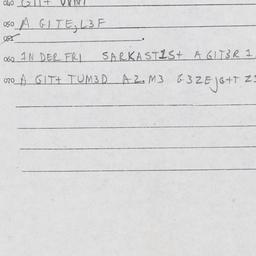 050 A GITE,L3F
055
060 IN DER FRI SARKAST1S+ A GIT3R 1
070 A GIT+ TUM3D A2.M3 G3ZEJG+T Z